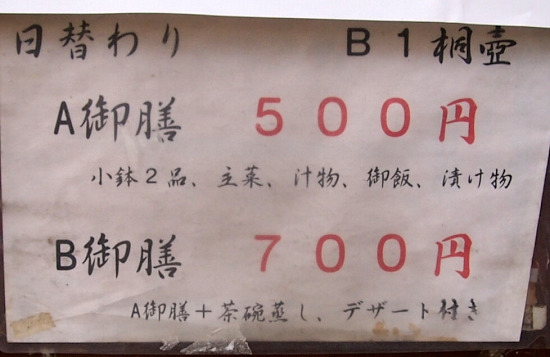 日替わり B1桐壺
A御膳 500円
小鉢2品、主菜、汁物、御飯、漬け物
B御膳 700円
A御膳+茶碗蒸し、デザート付き